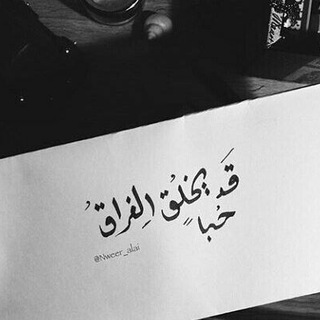 قَد يخلُق الفراقُ
حُباً
@Nweer_alai